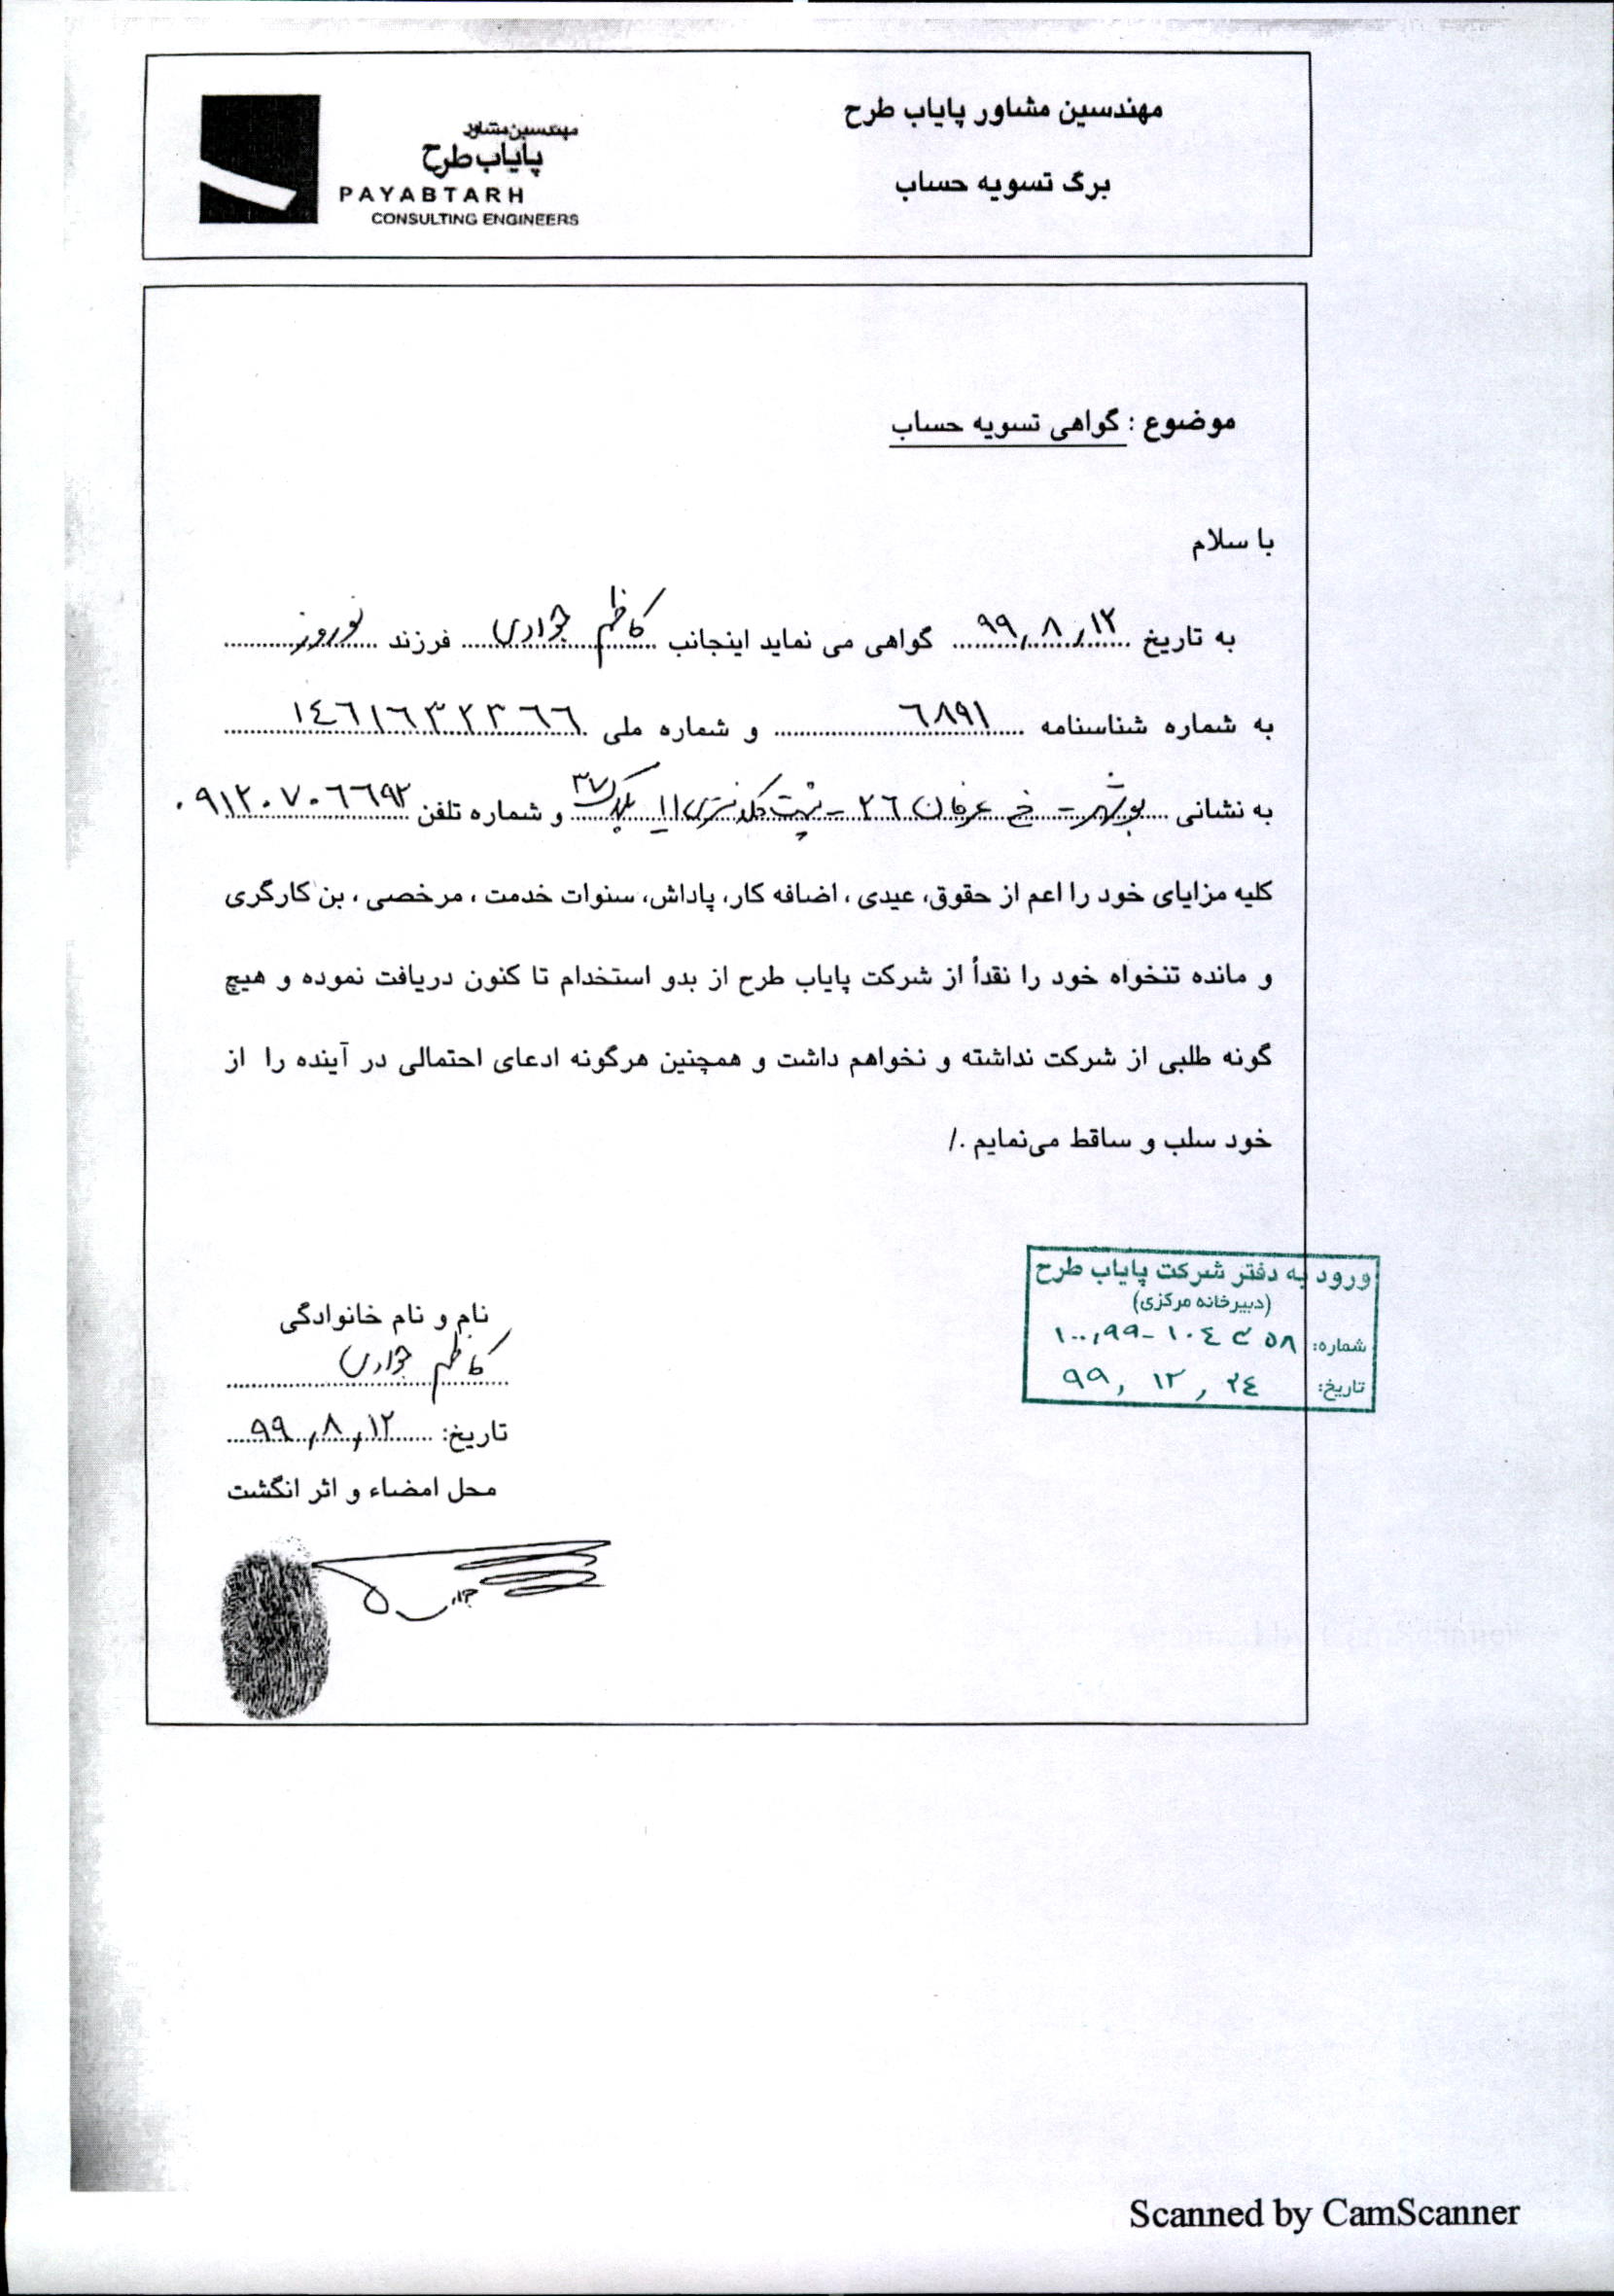 مهندسین مشاور پایاب طرح
برگ تسویه حساب
مهندسین مشاور
پایاب طرح
PAYABTARH
CONSULTING ENGINEERS
موضوع : گواهی تسویه حساب
با سلام
به تاریخ ۹۹/۸/۱۲ گواهی می نماید اینجانب کاظم جوادی فرزند نوروز
به شماره شناسنامه ٦٨٩١ و شماره ملی
به نشانی بوشهر - خ عرفان ٢٦ - پشت کلانتری ١١ پلاک ٣٧ و شماره تلفن ٠٩١٢٠٧٠٦٦٩٢
کلیه مزایای خود را اعم از حقوق، عیدی ، اضافه کار، پاداش، سنوات خدمت ، مرخصی ، بن کارگری
و مانده تنخواه خود را نقداً از شرکت پایاب طرح از بدو استخدام تا کنون دریافت نموده و هیچ
گونه طلبی از شرکت نداشته و نخواهم داشت و همچنین هرگونه ادعای احتمالی در آینده را از
خود سلب و ساقط می‌نمایم ./
ورود به دفتر شرکت پایاب طرح
(دبیرخانه مرکزی)
شماره:
تاریخ: ۹۹/۱۲/۲٤
نام و نام خانوادگی
کاظم جوادی
تاریخ: ۹۹/۸/۱۲
محل امضاء و اثر انگشت
Scanned by CamScanner